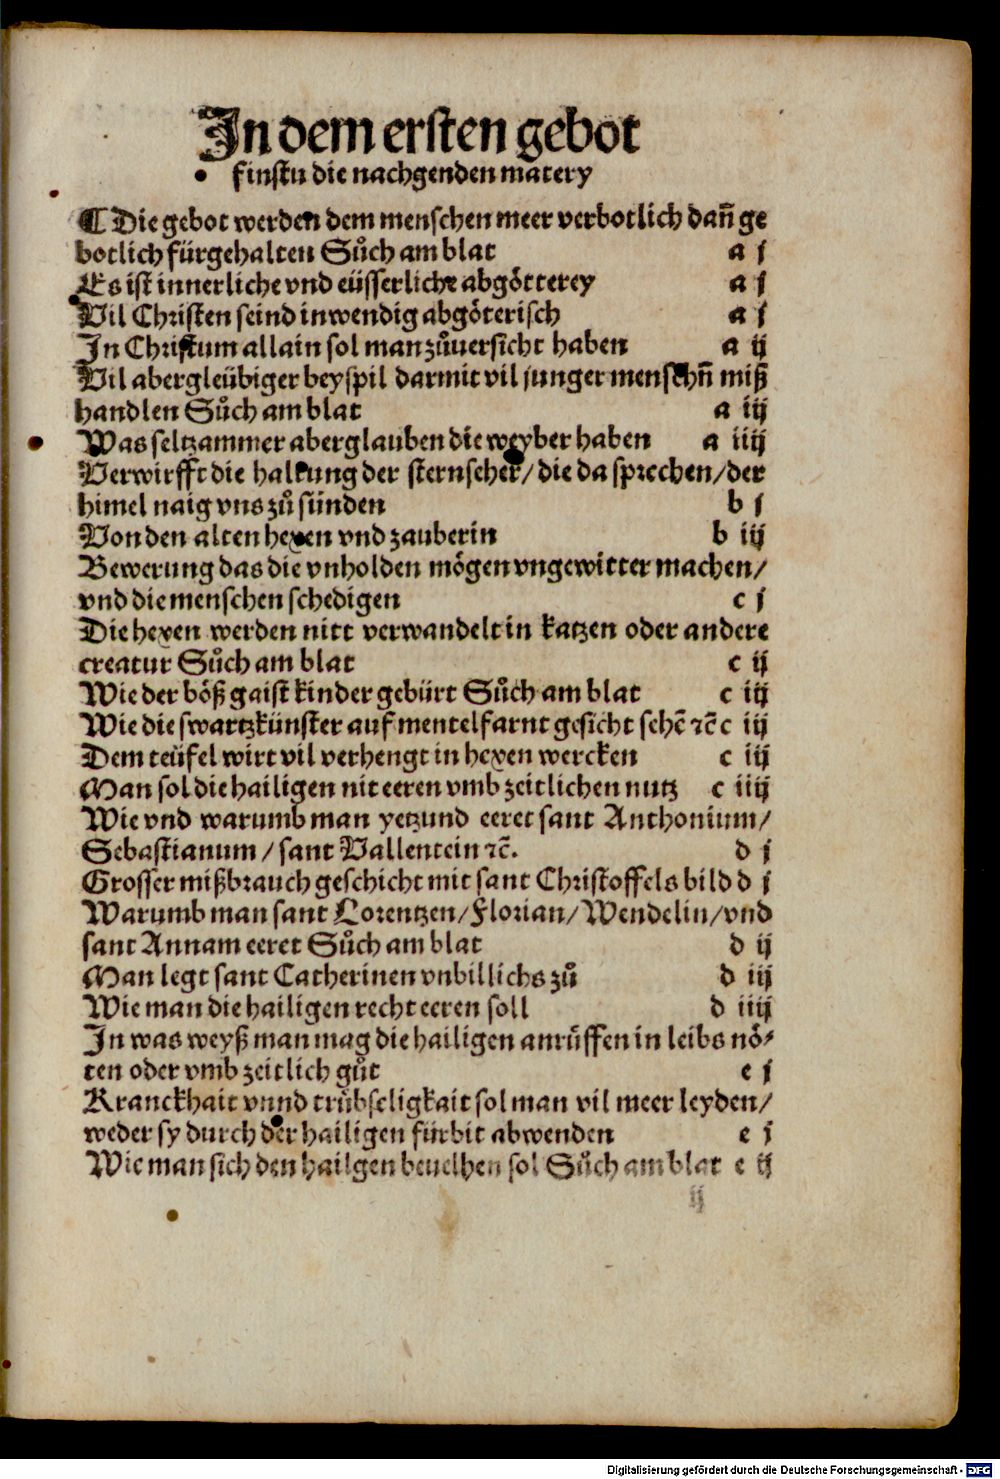 In dem ersten gebot
finstu die nachgenden matery
¶ Die gebot werden dem menschen meer verbotlich dañ ge
botlich fürgehalten Sůch am blat a j
Es ist innerliche vnd eüsserliche abgötterey a j
Vil Christen seind inwendig abgöterisch a j
In Christum allain sol man zůuersicht haben a ij
Vil abergleübiger beyspil darmit vil junger menschñ miß
handlen Sůch am blat a iij
Was seltzammer aberglauben die weyber haben a iiij
Verwirfft die haltung der sternseher/ die da sprechen/ der
himel naig vns zů sünden b j
Von den alten hexen vnd zauberin b iij
Bewerung das die vnholden mögen vngewitter machen/
vnd die menschen schedigen c j
Die hexen werden nitt verwandelt in katzen oder andere
creatur Sůch am blat c ij
Wie der böß gaist kinder gebürt Sůch am blat c iij
Wie die swartzkünster auf mentelfarnt gesicht sehē ⁊c̄ c iij
Dem teüfel wirt vil verhengt in hexen wercken c iij
Man sol die hailigen nit eeren vmb zeitlichen nutz c iiij
Wie vnd warumb man yetzund eeret sant Anthonium/
Sebastianum/ sant Vallentein ⁊c̄. d j
Grosser mißbrauch geschicht mit sant Christoffels bild d j
Warumb man sant Lorentzen/ Florian/ Wendelin/ vnd
sant Annam eeret Sůch am blat d ij
Man legt sant Catherinen vnbillichs zů d iij
Wie man die hailigen recht eeren soll d iiij
In was weyß man mag die hailigen anrůffen in leibs nö⸗
ten oder vmb zeitlich gůt e j
Kranckhait vnnd trübseligkait sol man vil meer leyden/
weder sy durch der hailigen fürbit abwenden e j
Wie man sich den hailgen beuelhen sol Sůch am blat e ij
ij
Digitalisierung gefördert durch die Deutsche Forschungsgemeinschaft - DFG